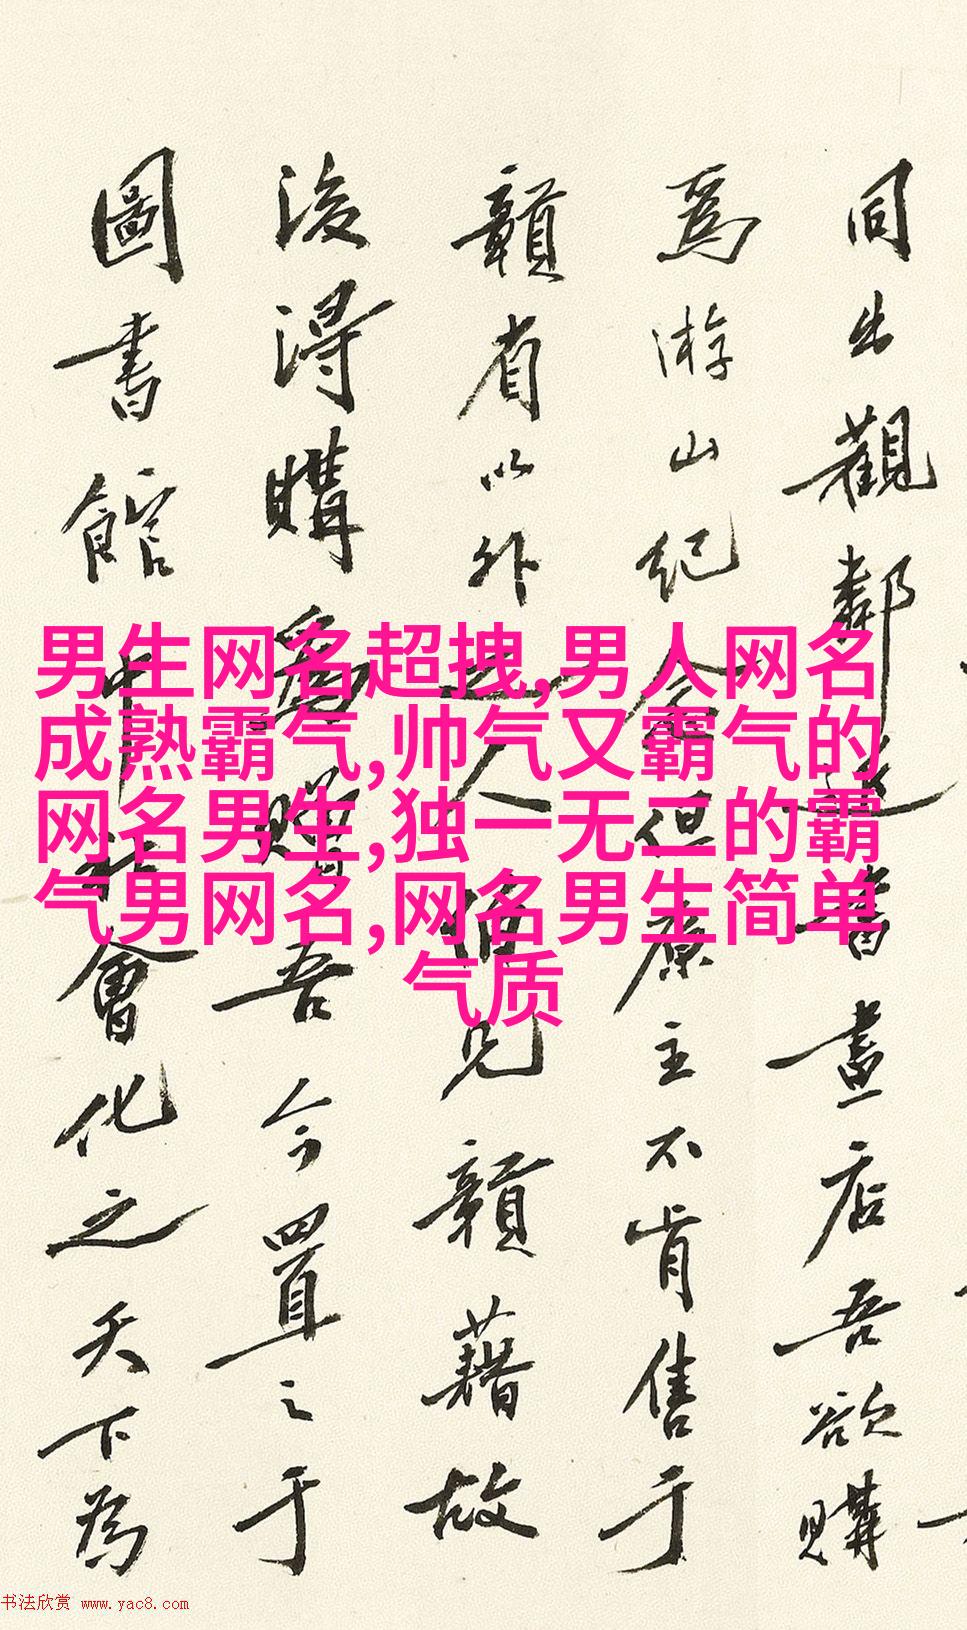 男生网名超拽,男人网名
成熟霸气,帅气又霸气的
网名男生,独一无二的霸
气男网名,网名男生简单
气质
同出觀鄰近書畫店吾欲購
為游山紀念但原主不肯售于
贛省以外之人見贛藉故
後得購為贈吾今置之于
圖書館中會化之天下為
书法欣赏 www.yac8.com